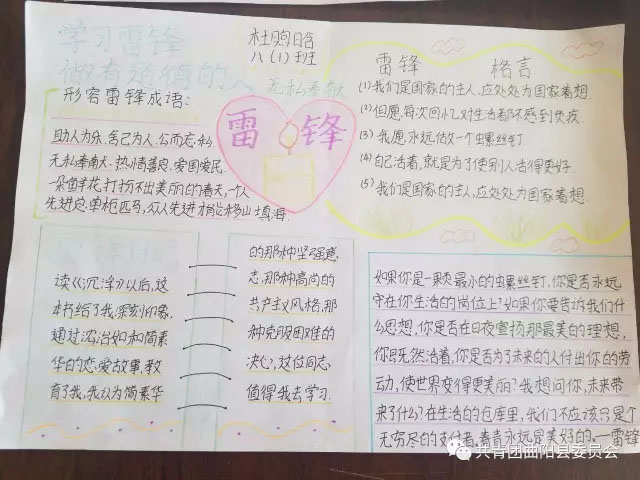 学习雷锋
做有道德的人
八(1)班
无私奉献
形容雷锋成语:
助人为乐,舍己为人,公而忘私.
无私奉献,热情善良,爱国爱民.
一朵鲜花打扮不出美丽的春天,一人
先进总单枪匹马,众人先进才能移山填海.
雷 锋
雷锋 格言
(1)我们是国家的主人,应处处为国家着想.
(2)但愿,每次回忆,对生活都不感到负疚.
(3)我愿永远做一个螺丝钉.
(4)自己活着,就是为了使别人活得更好.
(5)我们是国家的主人,应处处为国家着想.
读《沉浮》以后,这
本书给了我深刻印象,
通过沈浩如和简素
华的恋爱故事,教
育了我,我认为简素华
的那种坚强意
志,那种高尚的
共产主义风格,那
种克服困难的
决心,这位同志,
值得我去学习.
如果你是一颗最小的螺丝钉,你是否永远
守在你生活的岗位上?如果你要告诉我们什
么思想,你是否在日夜宣扬那最美的理想,
你既然活着,你是否为了未来的人付出你的劳
动,使世界变得更美丽?我想问你,未来带
来了什么?在生活的仓库里,我们不应该只是个
无穷尽的支付者.青春永远是美好的.—雷锋
共青团曲阳县委员会